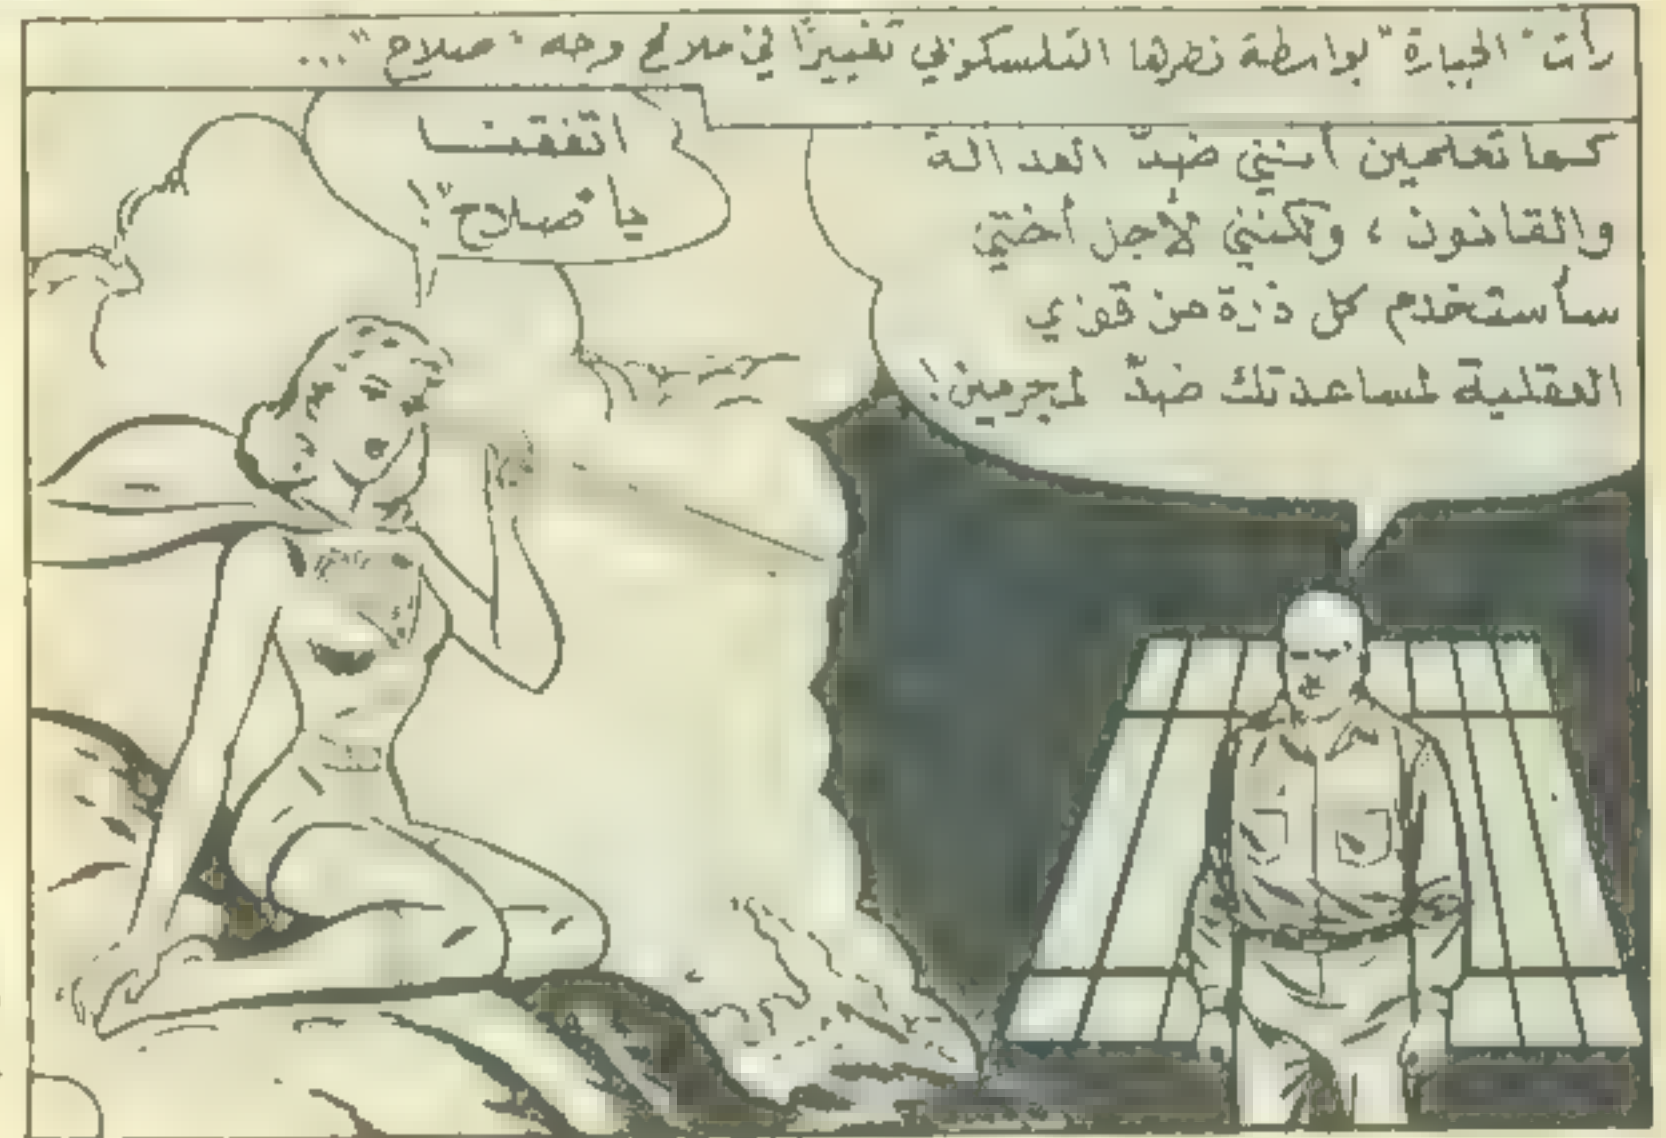 رأت "الجبارة" بواسطة نظرها التلسكوبي تغييرًا في ملامح وجه "صلاح"...
كما تعلمين أنني ضدّ العدالة
والقانون، ولكنني لأجل أختي
سأستخدم كل ذرة من قوزي
العقلية لمساعدتك ضدّ لمجرمين!
اتفقنا
يا "صلاح"!